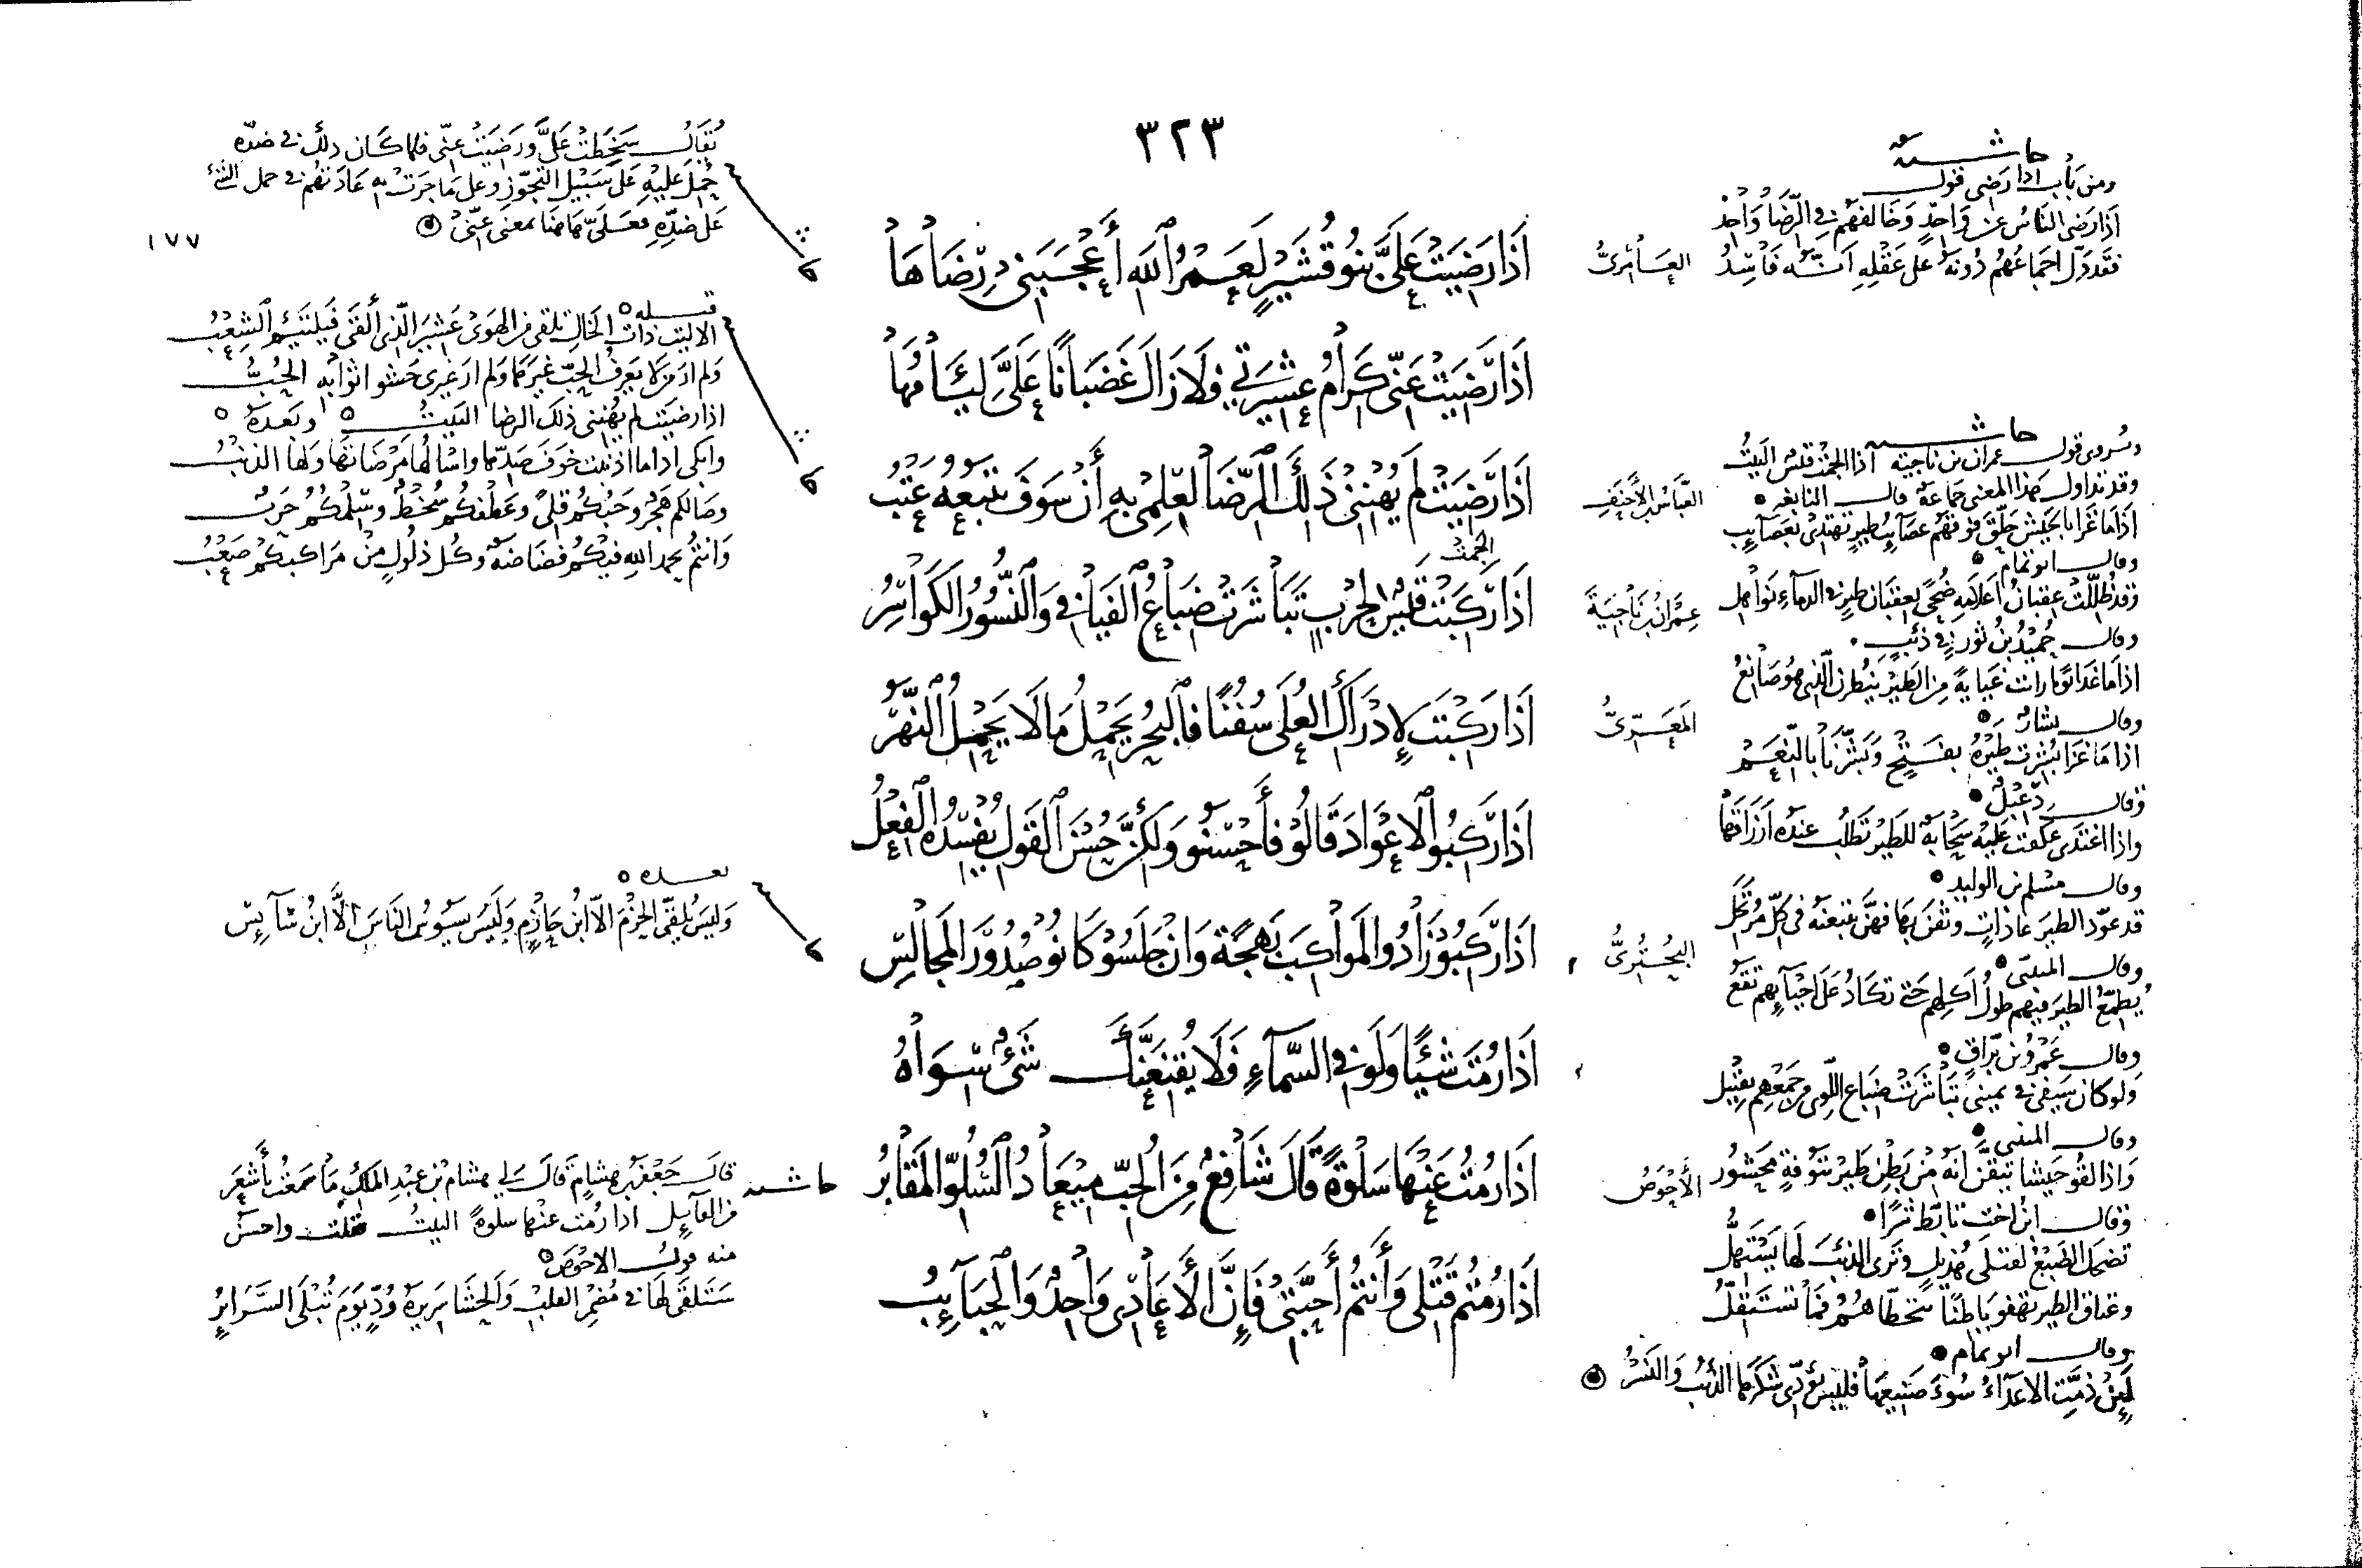 ٣٢٣
حاشية
ومن باب اذا رضي قول
اذا رضى الناس عن واحدٍ وخالفهم في الرّضا واحد
فقد دلّ اجماعهم دونه على عقله انّه فاسد
العامريّ
اذَا رَضِيَتْ عَلَيَّ بَنُو قُشَيْرٍ لَعَمْرُ اللَّهِ أَعْجَبَنِي رِضَاهَا
اذَا رَضِيَتْ عَنّي كِرَامُ عَشِيْرَتي فَلَا زَالَ غَضْبَانًا عَلَيَّ لِئَامُهَا
العبّاس بن الأحنف
اذَا رَضِيَتْ لَمْ يُهْنِنِي ذَلِكَ الرِّضَا لِعِلْمِي بِهِ أَنْ سَوْفَ يَتْبَعُهُ عَتْبُ
الجمت
عمران بن ناجية
اذَا رَكِبَتْ قَيْسُ لِحَرْبٍ تَبَاشَرَتْ ضِبَاعُ الفَيَافِي وَالنُّسُورُ الكَوَاسِرُ
المعرّيّ
اذَا رَكِبْتَ لِإِدْرَاكِ العُلَى سُفُنًا فَالبَحْرُ يَحْمِلُ مَا لَا يَحْمِلُ النَّهَرُ
اذَا رَكِبُوا الاعْوَادَ قَالُوْا فَأَحْسَنُوْا وَلَكِنَّ حُسْنَ القَوْلِ يُفْسِدُهُ الفِعْلُ
البحتريّ
اذَا رَكِبُوْا زَادُوا المَوَاكِبَ بَهْجَةً وَانْ جَلَسُوْا كَانُوْا صُدُوْرَ المَجَالِسِ
اذَا رُمْتَ شَيْئًا وَلَوْ في السَّمَاءِ فَلَا يُقْنِعَنَّكَ شَيْءٌ سِوَاهُ
الأحوص
اذَا رُمْتُ عَنْهَا سَلْوَةً قَالَ شَافِعٌ مِنَ الحُبِّ مِيْعَادُ السُّلُوِّ المَقَابِرُ
اذَا رُمْتُمُ قَتْلِي وَأَنْتُمْ أَحِبَّتِي فَإِنَّ الأَعَادِي وَاحِدٌ وَالحَبَائِبُ
حاشية
ويروى قول عمران بن ناجية اذا الجمت قيس البيت
وقد تداول هذا المعنى جماعة قال النابغة
اذا ما غزا بالجيش حلّق فوقهم عصائب طير تهتدى بعصائب
وقال ابو تمام
وقد ظللت عقبان اعلامه ضحى بعقبان طير في الدماء نواهل
وقال حميد بن ثور في ذئب
اذا ما غدا يوما رايت غيابة من الطير ينظرن الذي هو صانع
وقال بشار
اذا ما غزا بشرت طيره بفتح وبشرنا بالنعم
وقال دعبل
واذا اغتدى عكفت عليه سحابة للطير تطلب عنده ارزاقها
وقال مسلم بن الوليد
قد عوّد الطير عادات وثقن بها فهن يتبعنه في كلّ مرتحل
وقال المتنبي
يطمّع الطير فيهم طول اكلهم حتى تكاد على احيائهم تقع
وقال عمرو بن برّاق
ولو كان سيفي في يميني تباشرت ضباع اللوى من جمعهم بقتيل
وقال المتنبي
واذا لقو جيشا تيقّن انّه من بطن طير تنوفة محشور
وقال ابن اخت تأبّط شرّا
تضحك الضبع لقتلى هذيل وترى الذئب لها يستهلّ
وعتاق الطير تهفو بطانا تتخطاهم فما تستقلّ
وقال ابو تمام
لئن ذمّت الاعداء سوء صنيعها فليس يؤدّي شكرها الذئب والنسر
يقال سخطت عليّ ورضيت عنّي فلما كان ذلك في ضدّه
حمل عليه على سبيل التجوّز وعلى ما جرت به عادتهم في حمل الشئ
على ضدّه فعليّ هاهنا بمعنى عنّي
١٧٧
قبله
الا ليت ذات الخال تلقى من الهوى عشير الّذي ألقى فيلتئم الشعب
ولم ار من لا يعرف الحبّ غيرها ولم ار غيرى حشو اثوابه الحبّ
اذا رضيت لم يهنني ذلك الرضا البيت وبعده
وابكى اذا ما اذنبت خوف صدّها واسالها مرضاتها ولها الذنب
وصالكم هجر وحبّكم قلى وعطفكم سخط وسلمكم حرب
وانتم بحمد الله فيكم فضاضة وكل ذلول من مراكبكم صعب
بعده
وليس يلقّى الحزم الّا ابن حازم وليس يسوس الناس الّا ابن سآيس
حاشية
قال جعفر بن هشام قال لي هشام بن عبد الملك ما سمعت بأشعر
من القآيل اذا رمت عنها سلوة البيت فقلت واحسن
منه قول الاحوص
ستلقى لها في مضمر القلب والحشا سريرة ودّ يوم تبلى السّرائر